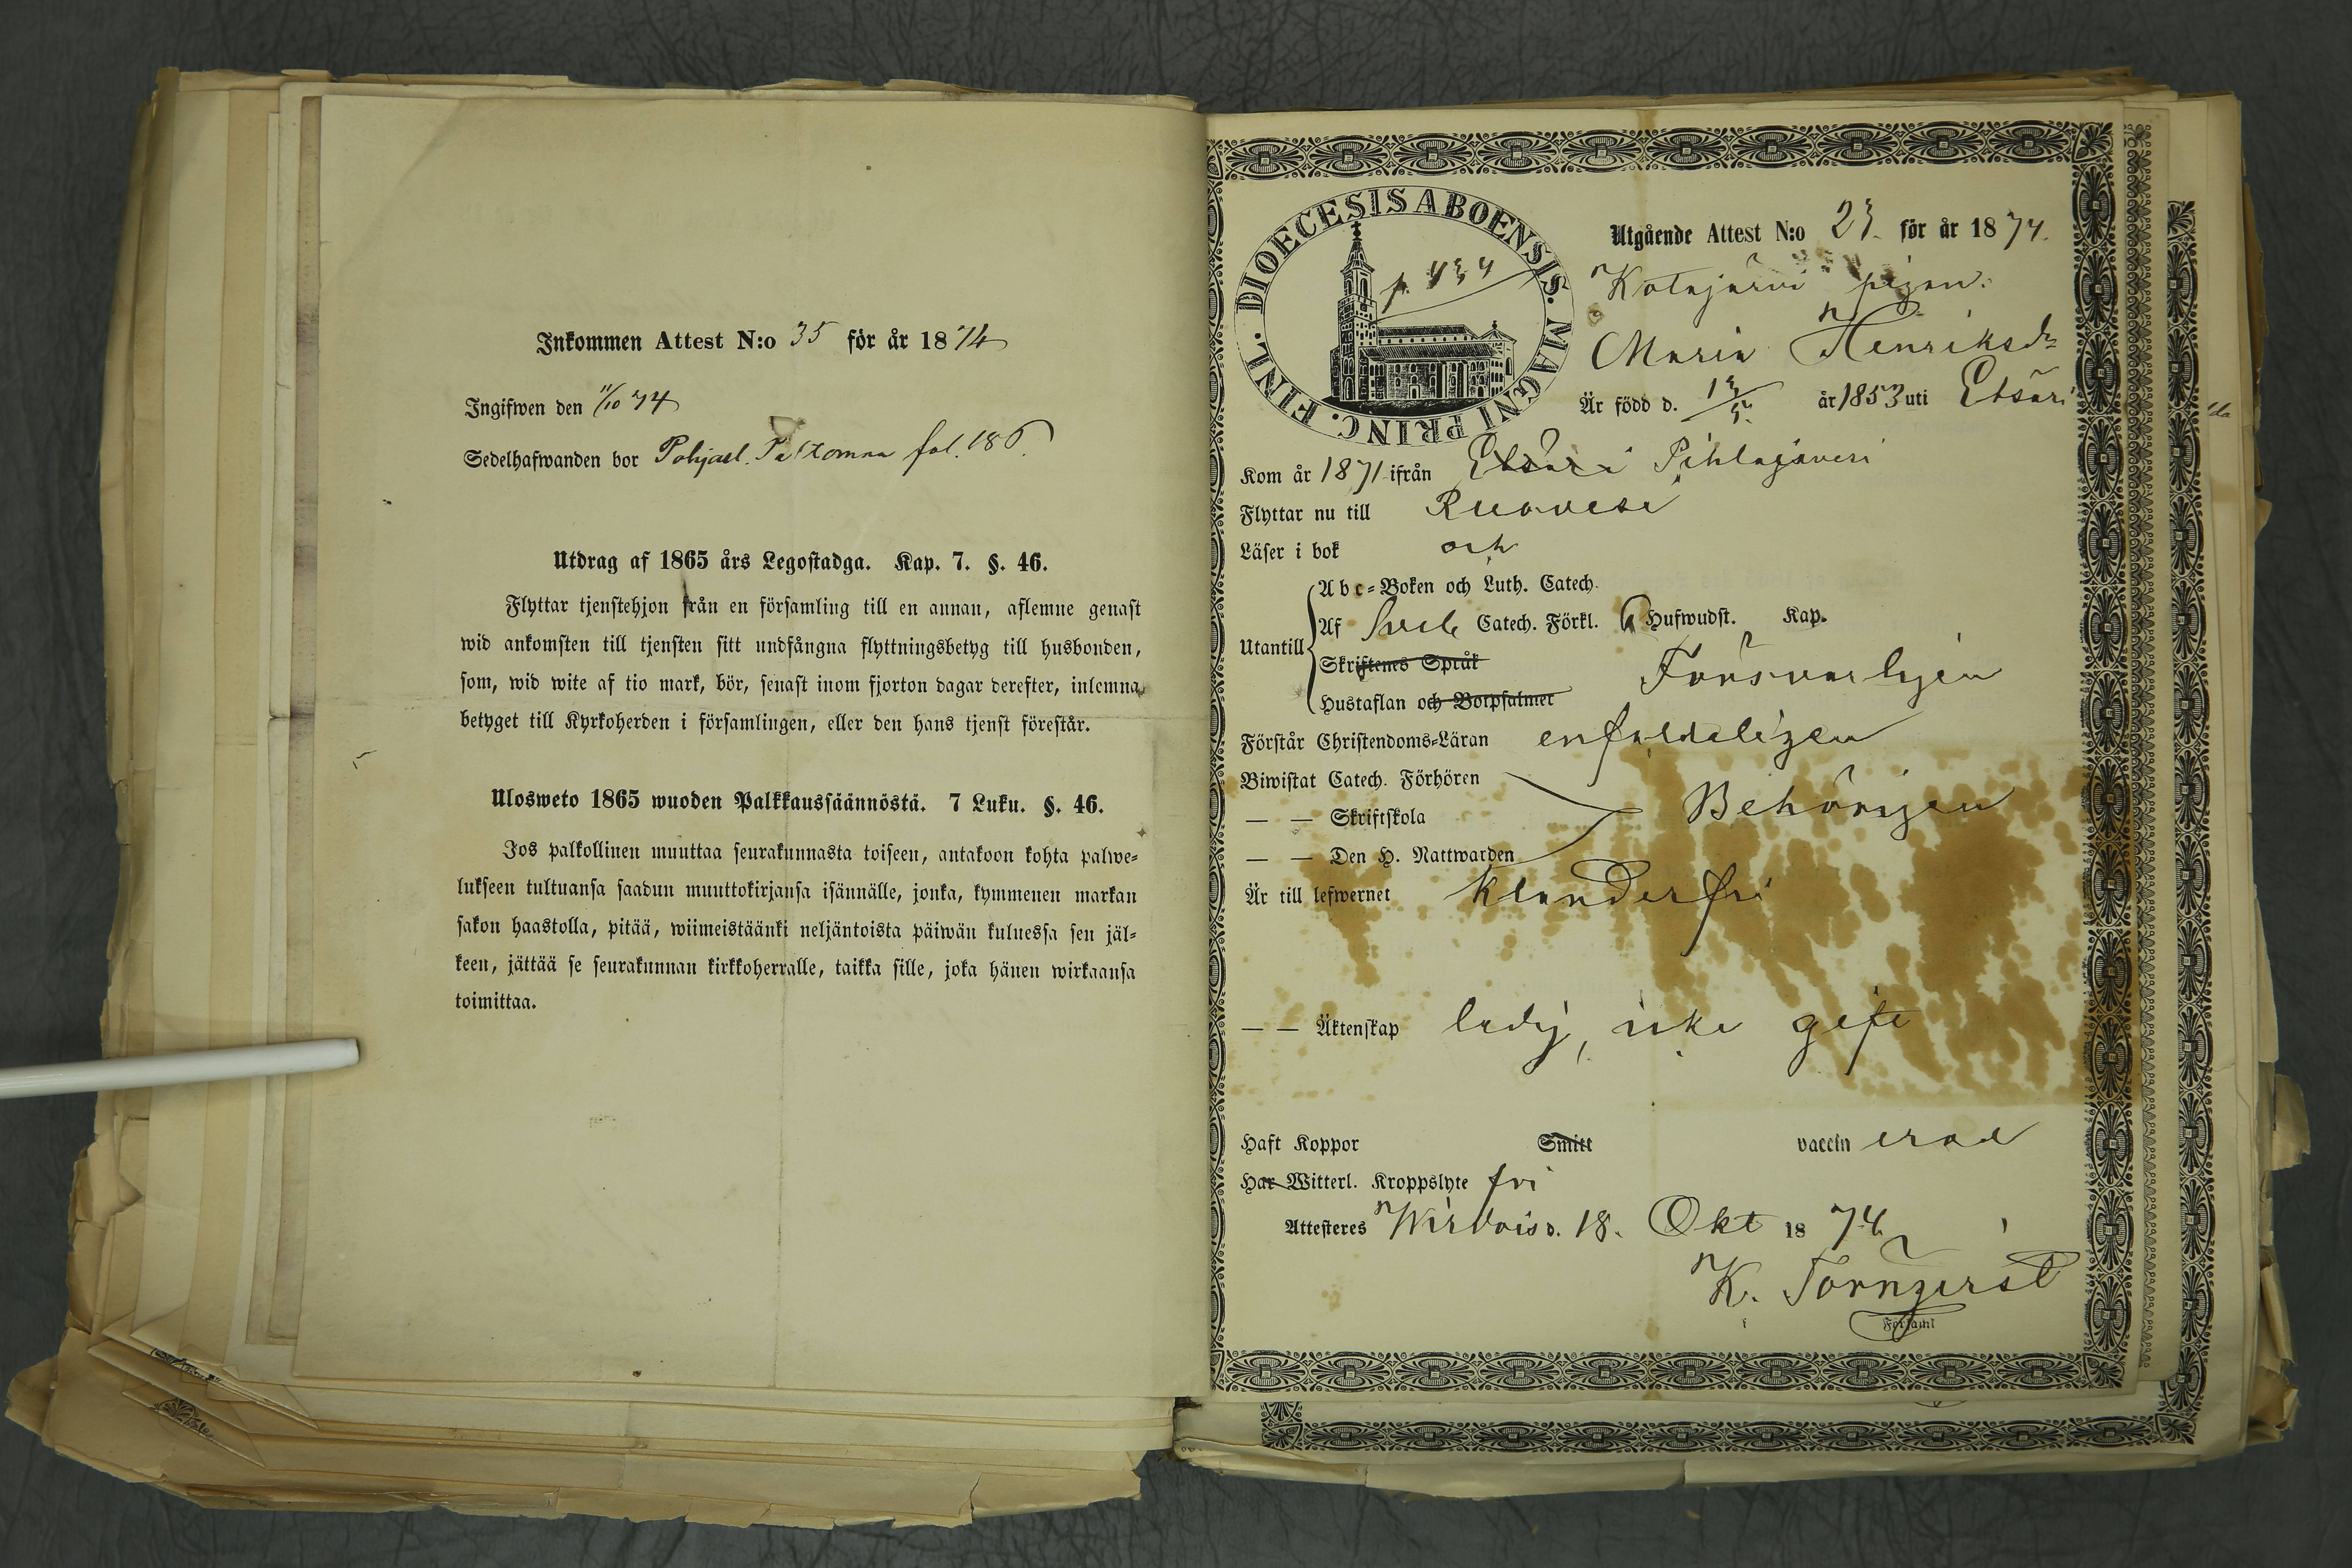 Inkommen Attest N:o 35 för år 1874
Ingifwen den 11/10 74
Sedelhafwanden bor Pohjasl. fol. 186.
Utdrag af 1865 års Legostadga. Kap. 7. §. 46.
Flyttar tjenstehjon från en församling till en annan, aflemne genast
wid ankomsten till tjensten sitt undfångna flyttningsbetyg till husbonden,
som, wid wite af tio mark, bör, senast inom fjorton dagar derefter, inlemna
betyget till Kyrkoherden i församlingen, eller den hans tjenst förestår.
Ulosweto 1865 wuoden Palkkaussäännöstä. 7 Luku. §. 46.
Jos palkollinen muuttaa seurakunnasta toiseen, antakoon kohta palwe-
lukseen tultuansa saadun muuttokirjansa isännälle, jonka, kymmenen markan
sakon haastolla, pitää, wiimeistäänki neljäntoista päiwän kuluessa sen jäl-
keen, jättää se seurakunnan kirkkoherralle, taikka sille, joka hänen wirkaansa
toimittaa.
DIOECESIS ABOENSIS. MAGNI PRINC. FINL.
p. 434
Utgående Attest N:o 23. för år 1874.
Kotajärvi pigan
Maria Henriksdr
Är född d. 13/5 år 1853 uti Etsäri
Kom år 1871 ifrån Etsäri Pihlajavesi
Flyttar nu till Ruovesi
Läser i bok och
Utantill
Abc-Boken och Luth. Catech.
Af Sveb Catech. Förkl. 6 Hufwudst. Kap.
Skriftenes Språk
Hustaflan och Botpsalmer
Försvarligen
Förstår Christendoms-Läran enfaldeligen
Biwistat Catech. Förhören
— — Skriftskola
Behörigen
— — Den H. Nattwarden
Är till lefwernet klanderfri
— — Äktenskap ledig, icke gift
Haft Koppor Smitt vaccin erad
Har Witterl. Kroppslyte fri
Attesteres Wirdois d. 18. Okt 1874
K. Törnqvist
Församl